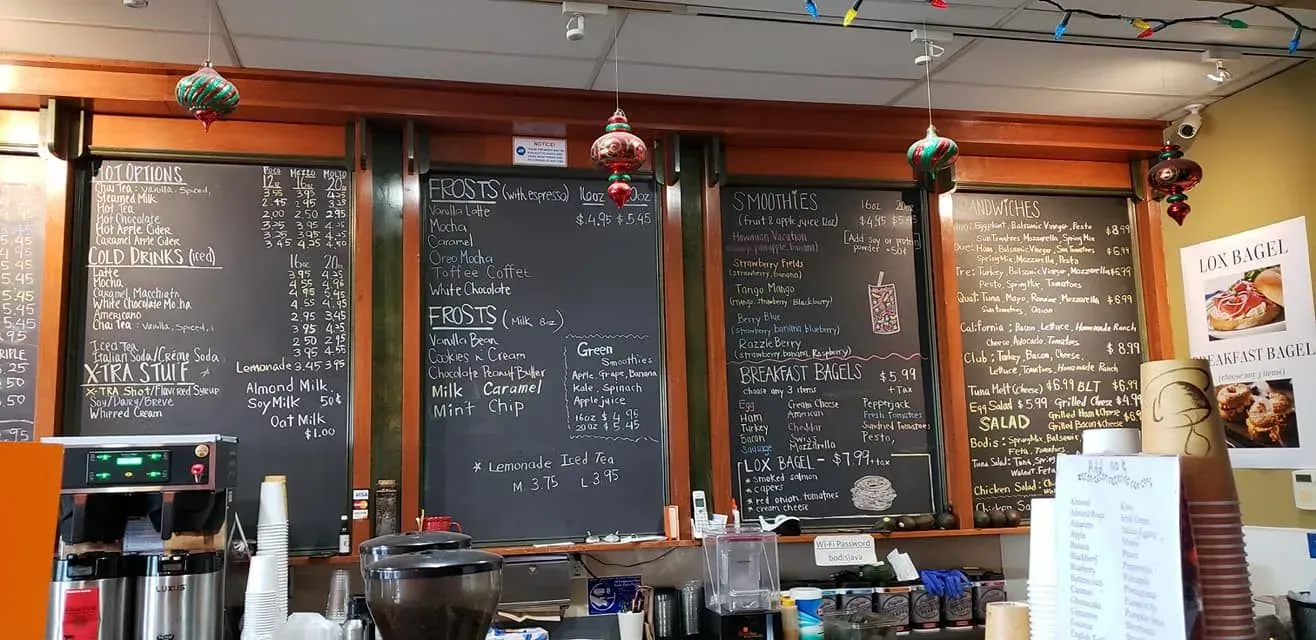 HOT OPTIONS
Poco Mezzo Molto
12oz 16oz 20oz
Chai Tea: Vanilla, Spiced, 3.55 3.95 4.35
Steamed Milk 2.45 2.95
Hot Tea 2.00 2.50 2.95
Hot Chocolate
Hot Apple Cider 3.25 3.95 4.35
Caramel Apple Cider 3.45 4.25 4.50
COLD DRINKS (iced)
16oz 20oz
Latte 3.95
Mocha 4.55
Caramel Macchiato 4.95 5.45
White Chocolate Mocha 4.55 4.95
Americano 2.95 3.45
Chai Tea: Vanilla, Spiced, 3.95 4.35
Iced Tea 2.95
Italian Soda/Créme Soda 3.95 4.55
Lemonade 3.45 3.95
X-TRA STUFF
X-TRA Shot/Flavored Syrup
Soy/Dairy/Breve
Whipped Cream
Almond Milk
Soy Milk 50¢
Oat Milk
$1.00
NOTICE!
FROSTS (with espresso) 16oz 20oz
Vanilla Latte $4.95 $5.45
Mocha
Caramel
Oreo Mocha
Toffee Coffee
White Chocolate
FROSTS (Milk 8oz)
Vanilla Bean
Cookies n Cream
Chocolate Peanut Butter
Milk Caramel
Mint Chip
Green
Smoothies
Apple, Grape, Banana
Kale, Spinach
Apple juice
16oz $4.95
20oz $5.45
* Lemonade Iced Tea
M 3.75 L 3.95
SMOOTHIES 16oz 20oz
(fruit & apple juice 12oz) $4.95
[Add soy or protein
powder +50¢
Hawaiian Vacation
(mango, pineapple, banana)
Strawberry Fields
(strawberry, banana)
Tango Mango
(mango, strawberry Blackburry)
Berry Blue
(strawberry, banana blueberry)
RazzleBerry
(strawberry, banana, Raspberry)
BREAKFAST BAGELS $5.99
choose any 3 items + Tax
Egg Cream Cheese Pepperjack
Ham American Fresh Tomatoes
Turkey Cheddar Sundried Tomatoes
Bacon Swiss Pesto,
Sausage Mozzarella
LOX BAGEL - $7.99 + tax
* smoked salmon
* capers
* red onion tomatoes
* cream cheese
SANDWICHES
Eggplant, Balsamic Vinegar, Pesto $8.99
Sun Tomatoes Mozzarella, Spring Mix
Due: Ham, Balsamic Vinegar, Sun Tomatoes $6.99
Spring Mix, Mozzarella, Pesto
Tre: Turkey, Balsamic Vinegar, Mozzarella $6.99
Pesto, Spring Mix, Tomatoes
Quat: Tuna, Mayo, Romaine, Mozzarella $6.99
Sun tomatoes, Onion
California: Bacon, Lettuce, Homemade Ranch
Cheese, Avocado, Tomatoes $8.99
Club: Turkey, Bacon, Cheese,
Lettuce, Tomatoes, Homemade Ranch
Tuna Melt (cheese) $6.99 BLT $6.99
Egg Salad $5.99 Grilled Cheese $4.99
Grilled Ham & Cheese
SALAD Grilled Bacon & Cheese
Bodis: Spring Mix, Balsamic,
Feta, Tomato
Tuna Salad: Tuna, Spring
Walnut, Feta
Chicken Salad:
LOX BAGEL
BREAKFAST BAGEL
(choose any 3 items)
Wi-Fi Password
bodisjava
LUXUS
VISA
Almond
Almond Roca
Amaretto
Apple
Banana
Blackberry
Blueberry
Butterscotch
Caramel
Cheesecake
Cinnamon
Coconut
Kiwi
Mango
Peach